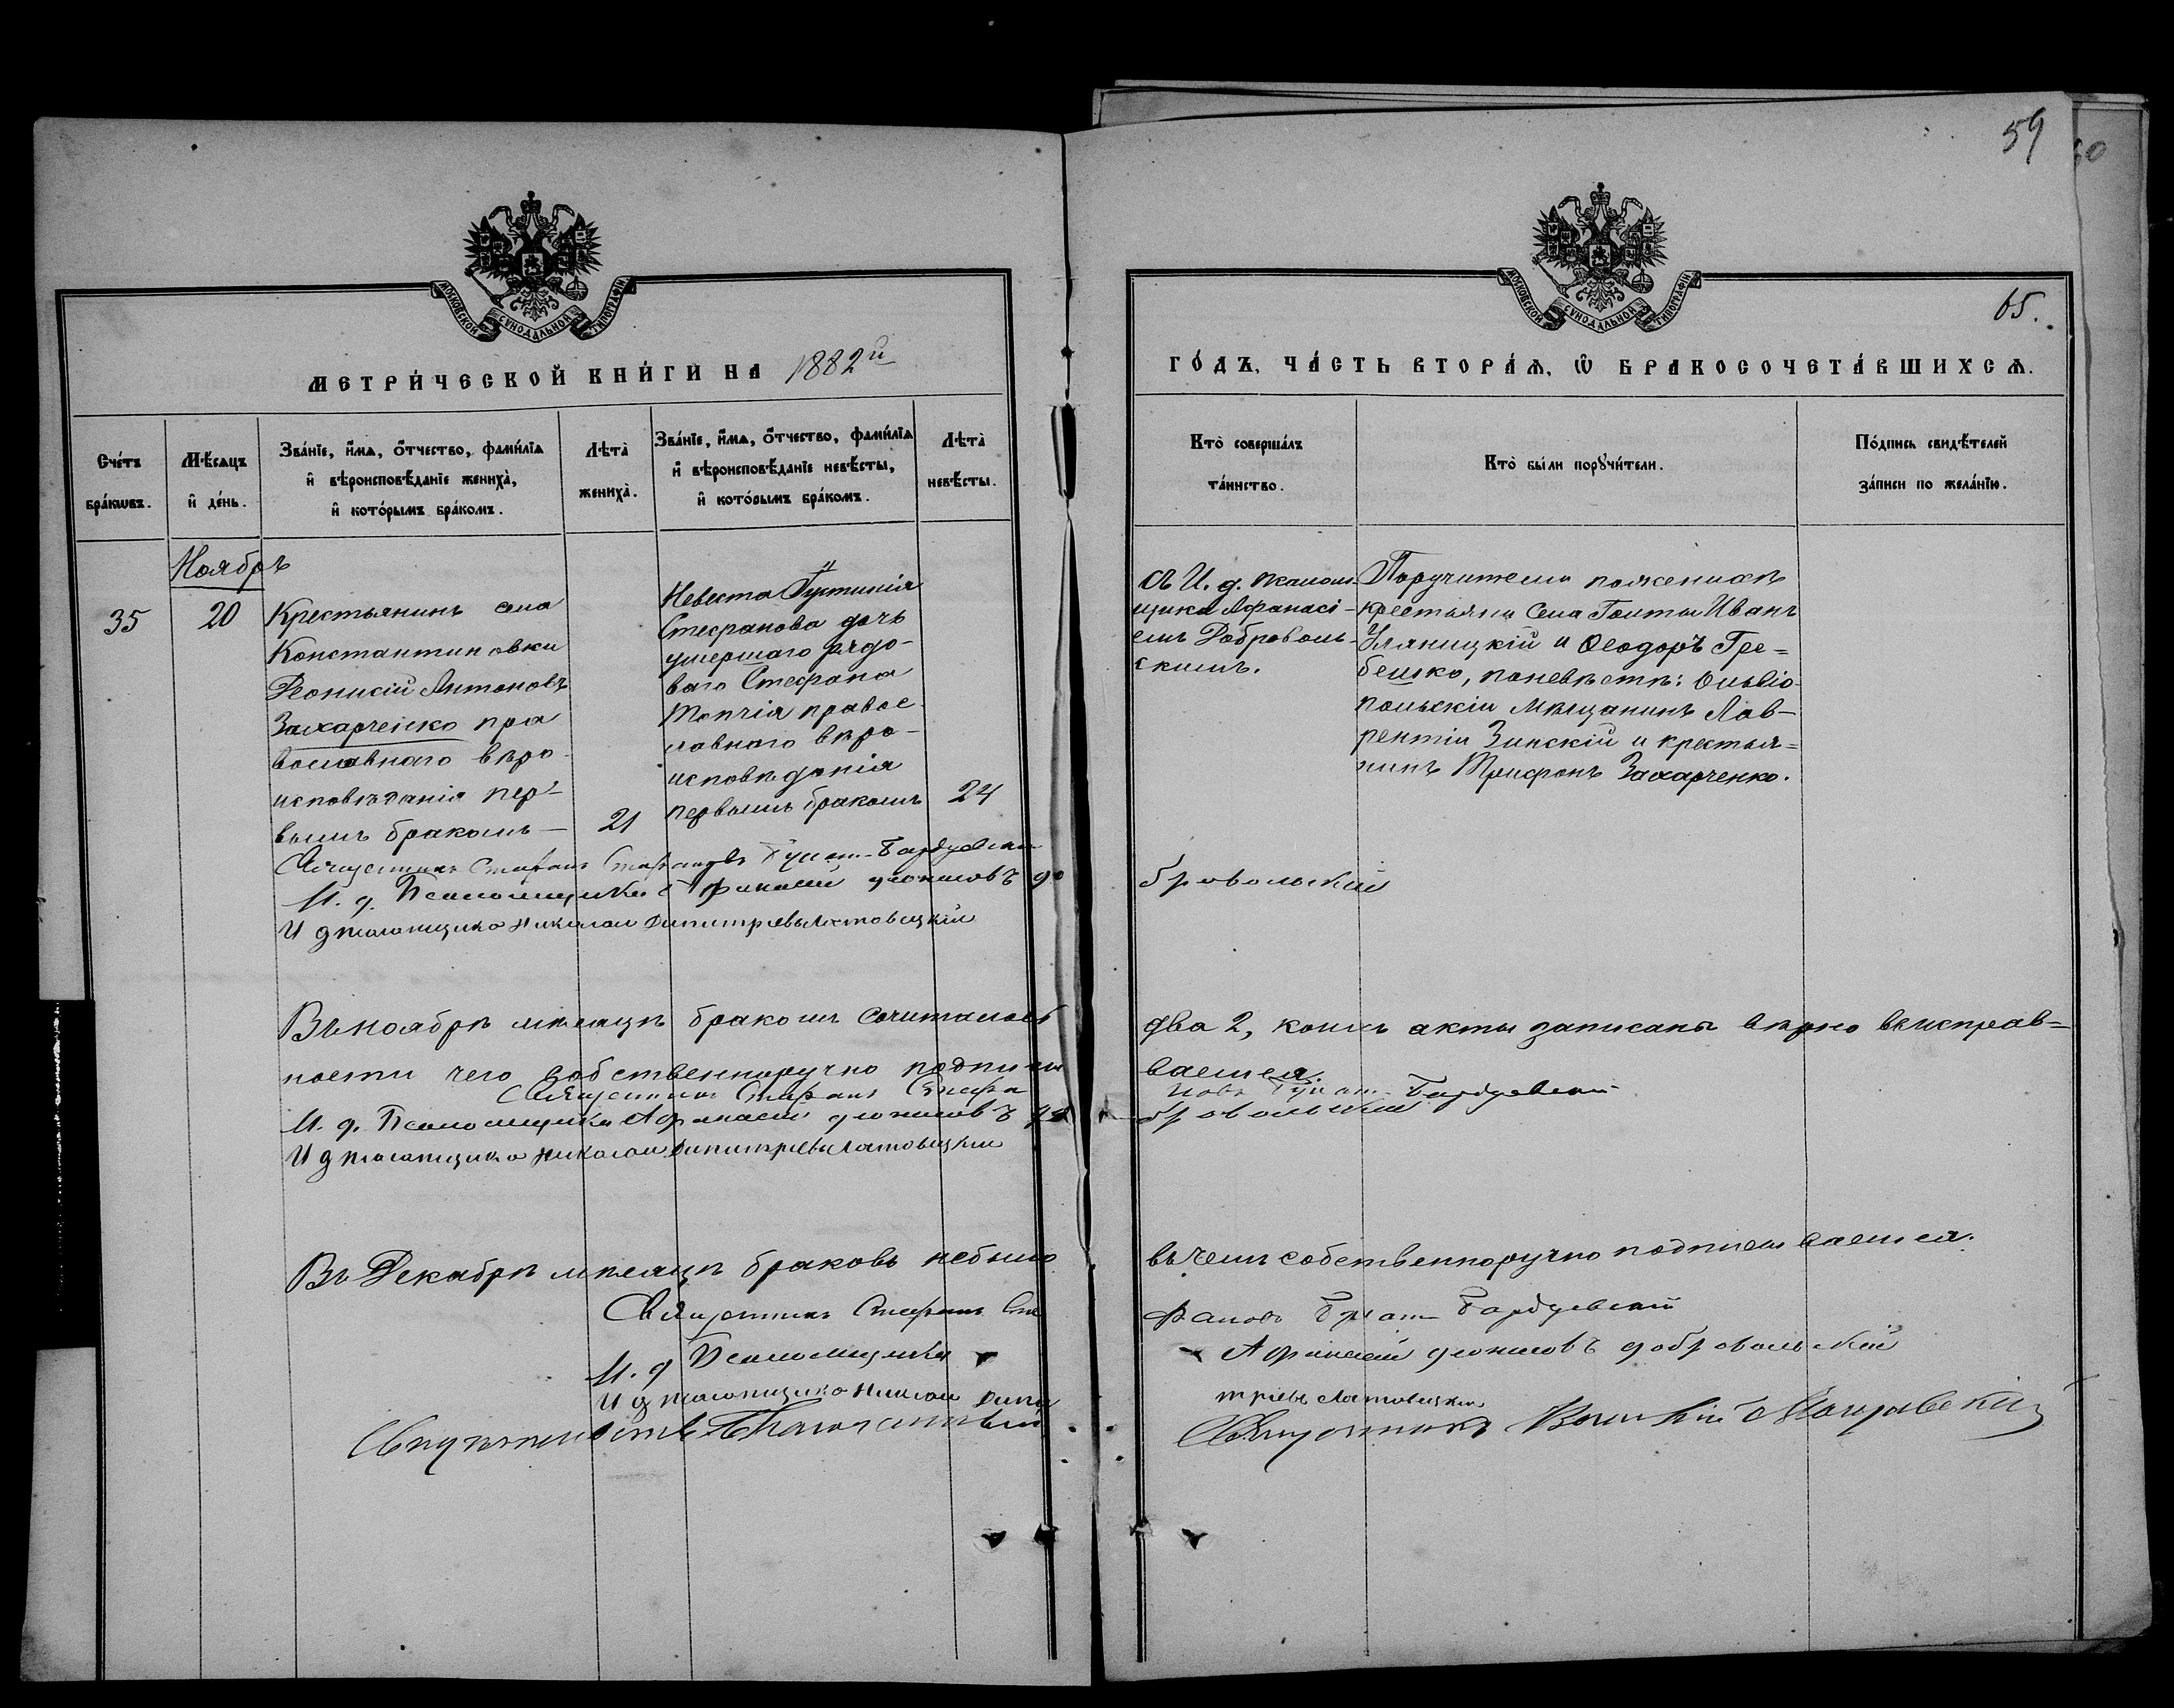 59
60
МОСКОВСКОЙ СУНОДАЛЬНОЙ ТИПОГРАФІИ
МЕТРИ́ЧЕСКОЙ КНИ́ГИ НА 1882й
Сче́тъ бра́кωвъ.
Мѣ́сяцъ и҆ де́нь.
Зва́нїе, и҆́мѧ, ѻ҆́тчество, фамі́лїѧ
и҆ вѣроисповѣ́данїе жениха̀,
и҆ кото́рымъ бра́комъ.
Лѣ́та̀ жениха̀.
Зва́нїе, и҆́мѧ, ѻ҆́тчество, фамі́лїѧ
и҆ вѣроисповѣ́данїе невѣ́сты,
и҆ кото́рымъ бра́комъ.
Лѣ́та̀ невѣ́сты.
Ноябрь
35
20
Крестьянинъ села
Константиновки
Діонисій Антоновъ
Захарченко пра
вославнаго вѣро-
исповѣданія пер-
вымъ бракомъ —
21
Невеста Іустинія
Стефанова дочь
умершаго рядо-
ваго Стефана
Топчія правос
лавнаго вѣро-
исповѣданія
первымъ бракомъ
24
Священникъ Стефанъ Стефановъ
И. д. Псаломщика Афанасій Діонисовъ До
И д псаломщика Николай Димитріевъ
Въ ноябрѣ мѣсяцѣ бракомъ сочиталось
ности чего собственноручно подписы
Священникъ Стефанъ Стефа
И. д. Псаломщика Афанасій Діонисовъ До
И д псаломщика Николай Димитріевъ
Въ Декабрѣ мѣсяцѣ браковъ небыло
Священникъ Стефанъ Сте
И. д Псаломщика
И д псаломщика Николай Дими
МОСКОВСКОЙ СУНОДАЛЬНОЙ ТИПОГРАФІИ
65.
ГО́ДЪ, ЧА́СТЬ ВТОРА́Ѧ, Ѽ БРАКОСОЧЕТА́ВШИХСѦ.
Кто̀ соверша́лъ
та́инство.
Кто̀ бы́ли порꙋчи́тели.
По́дпись свидѣ́телей
за́писи по жела́нїю.
съ И. д. псалом-
щика Афанасі-
емъ Доброволь-
скимъ.
Поручители пожениху
крестьяни Села Голты Иванъ
Уляницкій и Ѳеодоръ Гре=
бешко, поневѣстѣ: Ольвіо-
польскій мѣщанинъ Лав-
рентій Зинскій и крестья=
нинъ Трифонъ Захарченко.
бровольскій
два 2, коихъ акты записаны вѣрно въисправ=
ваемся
новъ
бровольскій
въ чемъ собственноручно подписываемся.
фановъ
Афанасій Діонисовъ Добровольскій
тріевъ
Священникъ